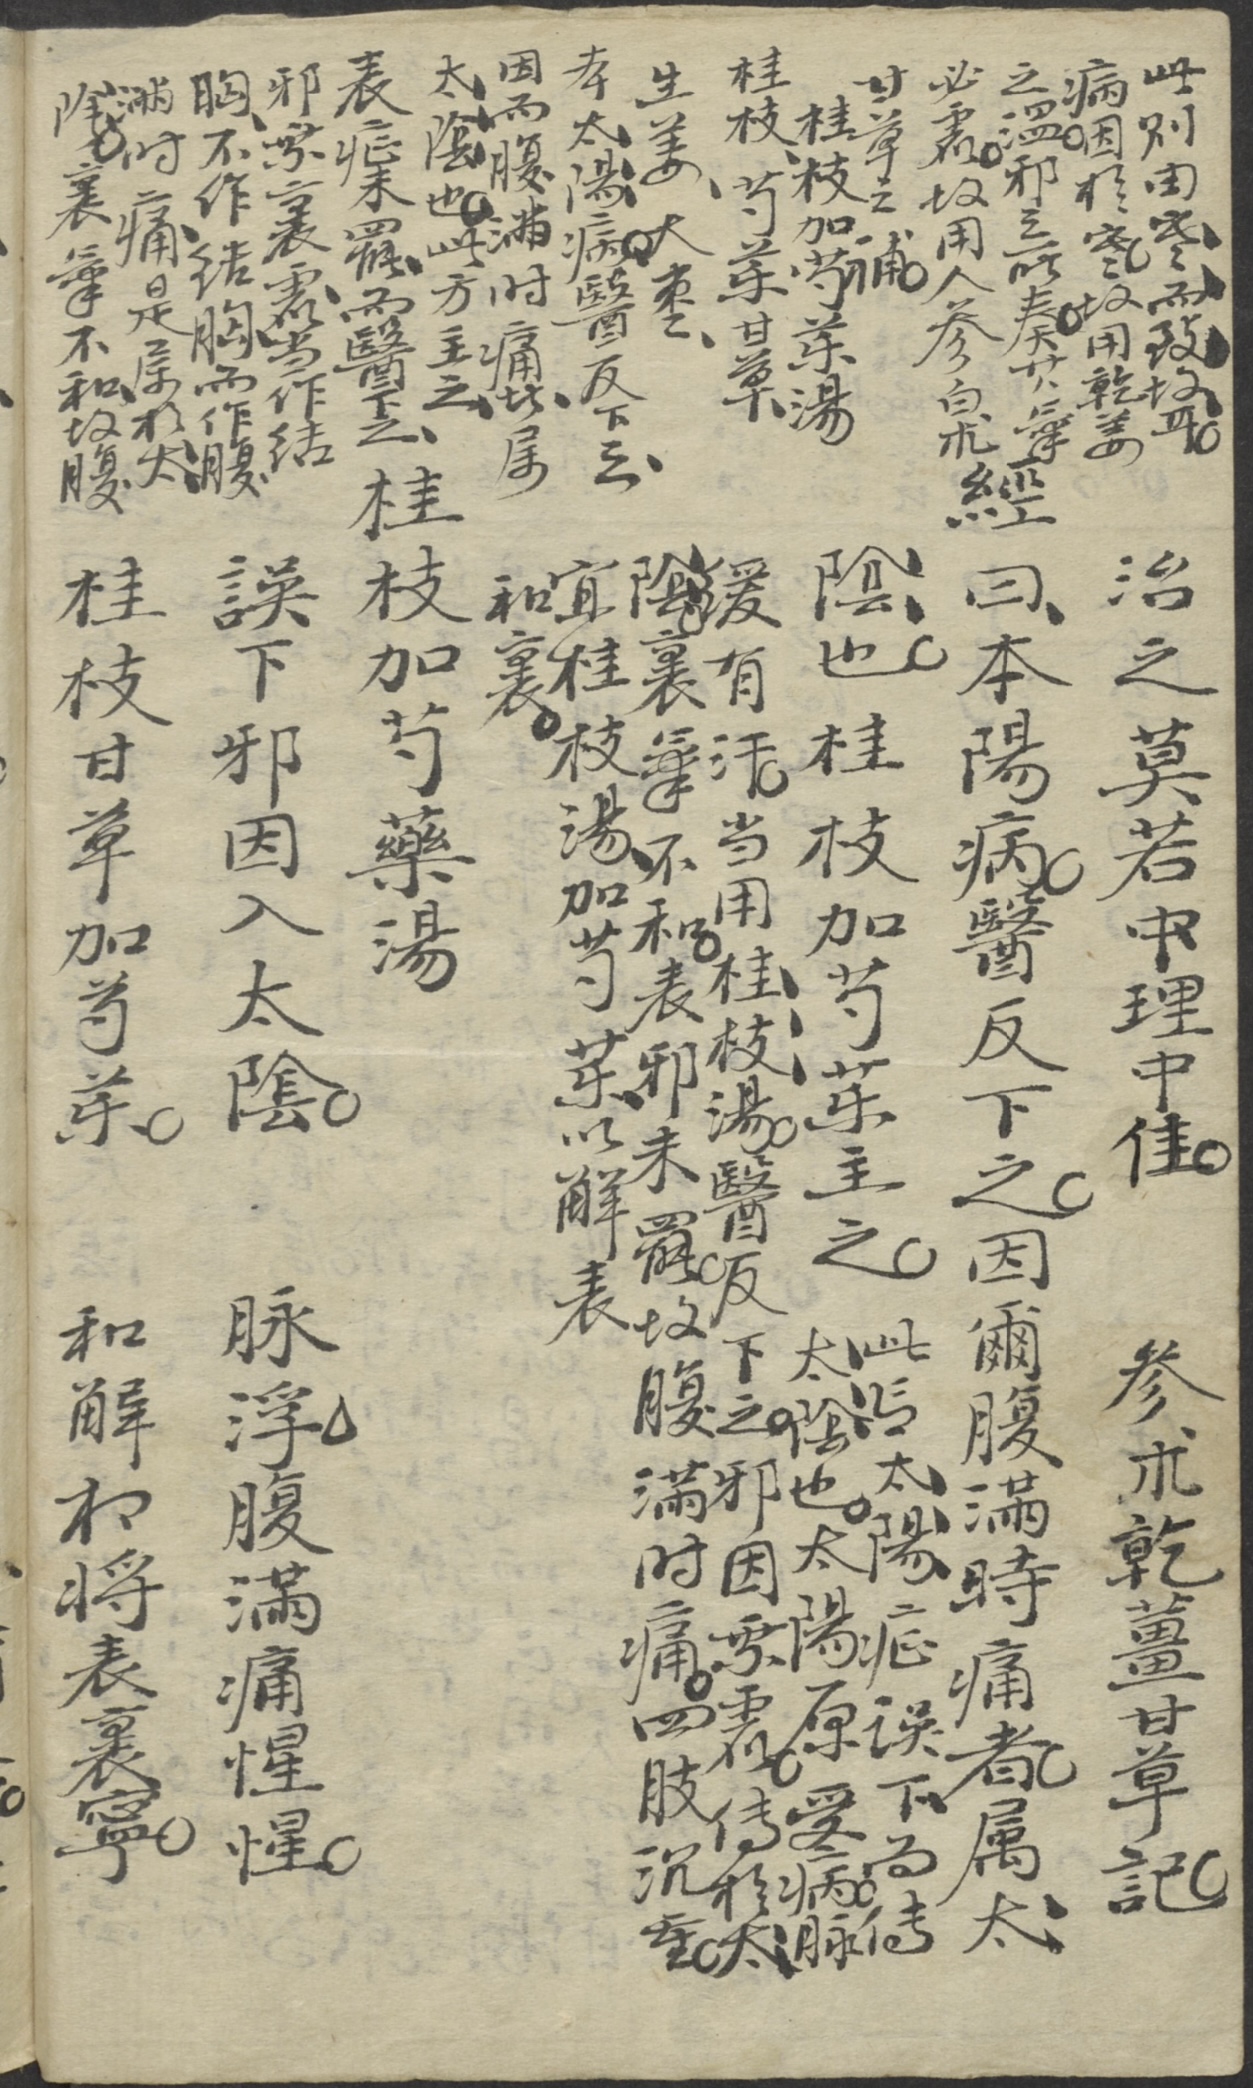 治之莫若中理中佳　參朮乾薑甘草記
經曰本陽病醫反下之因爾腹滿時痛者属太
陰也桂枝加芍药主之
此言太陽症误下而传
太陰也太陽原受病脉
緩有汗当用桂枝湯醫反下之邪因乘虚传於太
陰裏氣不和表邪未罷故腹滿时痛四肢沉重
宜桂枝湯加芍药以解表
和裏
桂枝加芍藥湯
誤下邪因入太陰　脉浮腹滿痛惺惺
桂枝甘草加芍药　和解相将表裏寧
此则由寒而致故耳
病因於寒故用乾姜
之溫邪之所奏其氣
必虚故用人参白朮
甘草之補
桂枝加芍药湯
桂枝芍药甘草
生姜大枣
本太陽病醫反下之
因而腹滿时痛此属
太陰也此方主之
表症未罷而醫下之
邪乘裏虚当作结
胸不作结胸而作腹
滿时痛是属於太
陰裏氣不和故腹